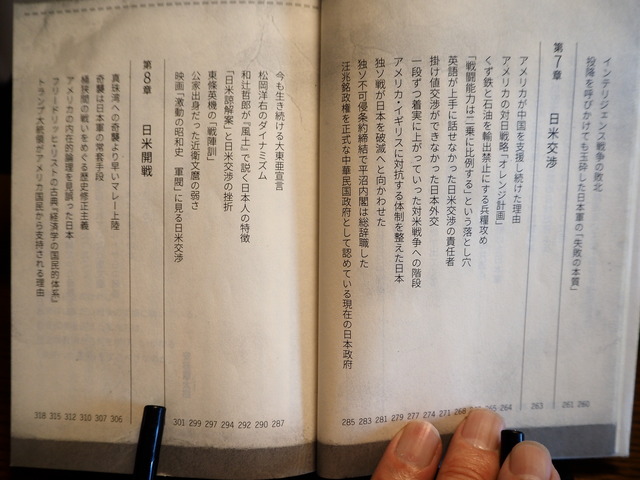 インテリジェンス戦争の敗北 260
投降を呼びかけても玉砕した日本軍の「失敗の本質」 261
第7章 日米交渉 263
アメリカが中国を支援し続けた理由 264
アメリカの対日戦略「オレンジ計画」
くず鉄と石油を輸出禁止にする兵糧攻め
「戦闘能力は二乗に比例する」という落とし穴
英語が上手に話せなかった日米交渉の責任者 268
掛け値交渉ができなかった日本外交 271
一段ずつ着実に上がっていった対米戦争への階段 274
アメリカ・イギリスに対抗する体制を整えた日本 277
独ソ戦が日本を破滅へと向かわせた 279
独ソ不可侵条約締結で平沼内閣は総辞職した 281
汪兆銘政権を正式な中華民国政府として認めている現在の日本政府 283
285
今も生き続ける大東亜宣言 287
松岡洋右のダイナミズム 290
和辻哲郎が『風土』で説く日本人の特徴 292
「日米諒解案」と日米交渉の挫折 294
東條英機の「戦陣訓」 297
公家出身だった近衛文麿の弱さ 299
映画「激動の昭和史 軍閥」に見る日米交渉 301
第8章 日米開戦
真珠湾への奇襲より早いマレー上陸 306
奇襲は日本軍の常套手段 307
桶狭間の戦いをめぐる歴史修正主義 310
アメリカの内在的論理を見誤った日本 312
フリードリッヒ・リストの古典『経済学の国民的体系』 315
トランプ大統領がアメリカ国民から支持される理由 318